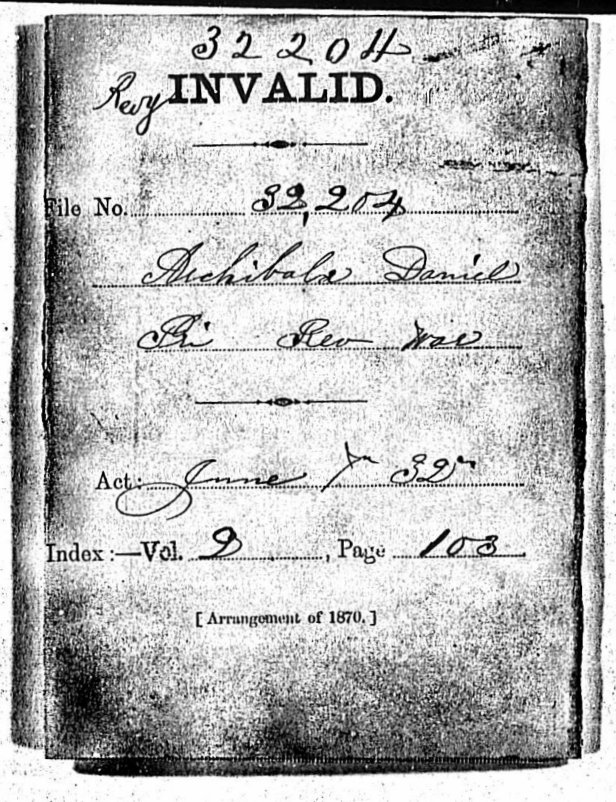 32204
Revy INVALID.
File No. 32,204
Archibald Daniel
Pri Rev War
Act: June 7" 32"
Index:—Vol. 2, Page 103
[Arrangement of 1870.]